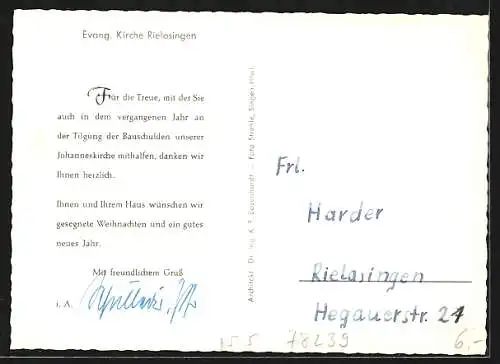 Evang. Kirche Rielasingen
Für die Treue, mit der Sie
auch in dem vergangenen Jahr an
der Tilgung der Bauschulden unserer
Johanneskirche mithalfen, danken wir
Ihnen herzlich.
Ihnen und Ihrem Haus wünschen wir
gesegnete Weihnachten und ein gutes
neues Jahr.
Mit freundlichem Gruß
i. A.
Architekt Dr. Ing. K. F. – Foto Stranle, Singen/Htwl.
Frl.
Harder
Rielasingen
Hegauerstr. 24
78239
6,-